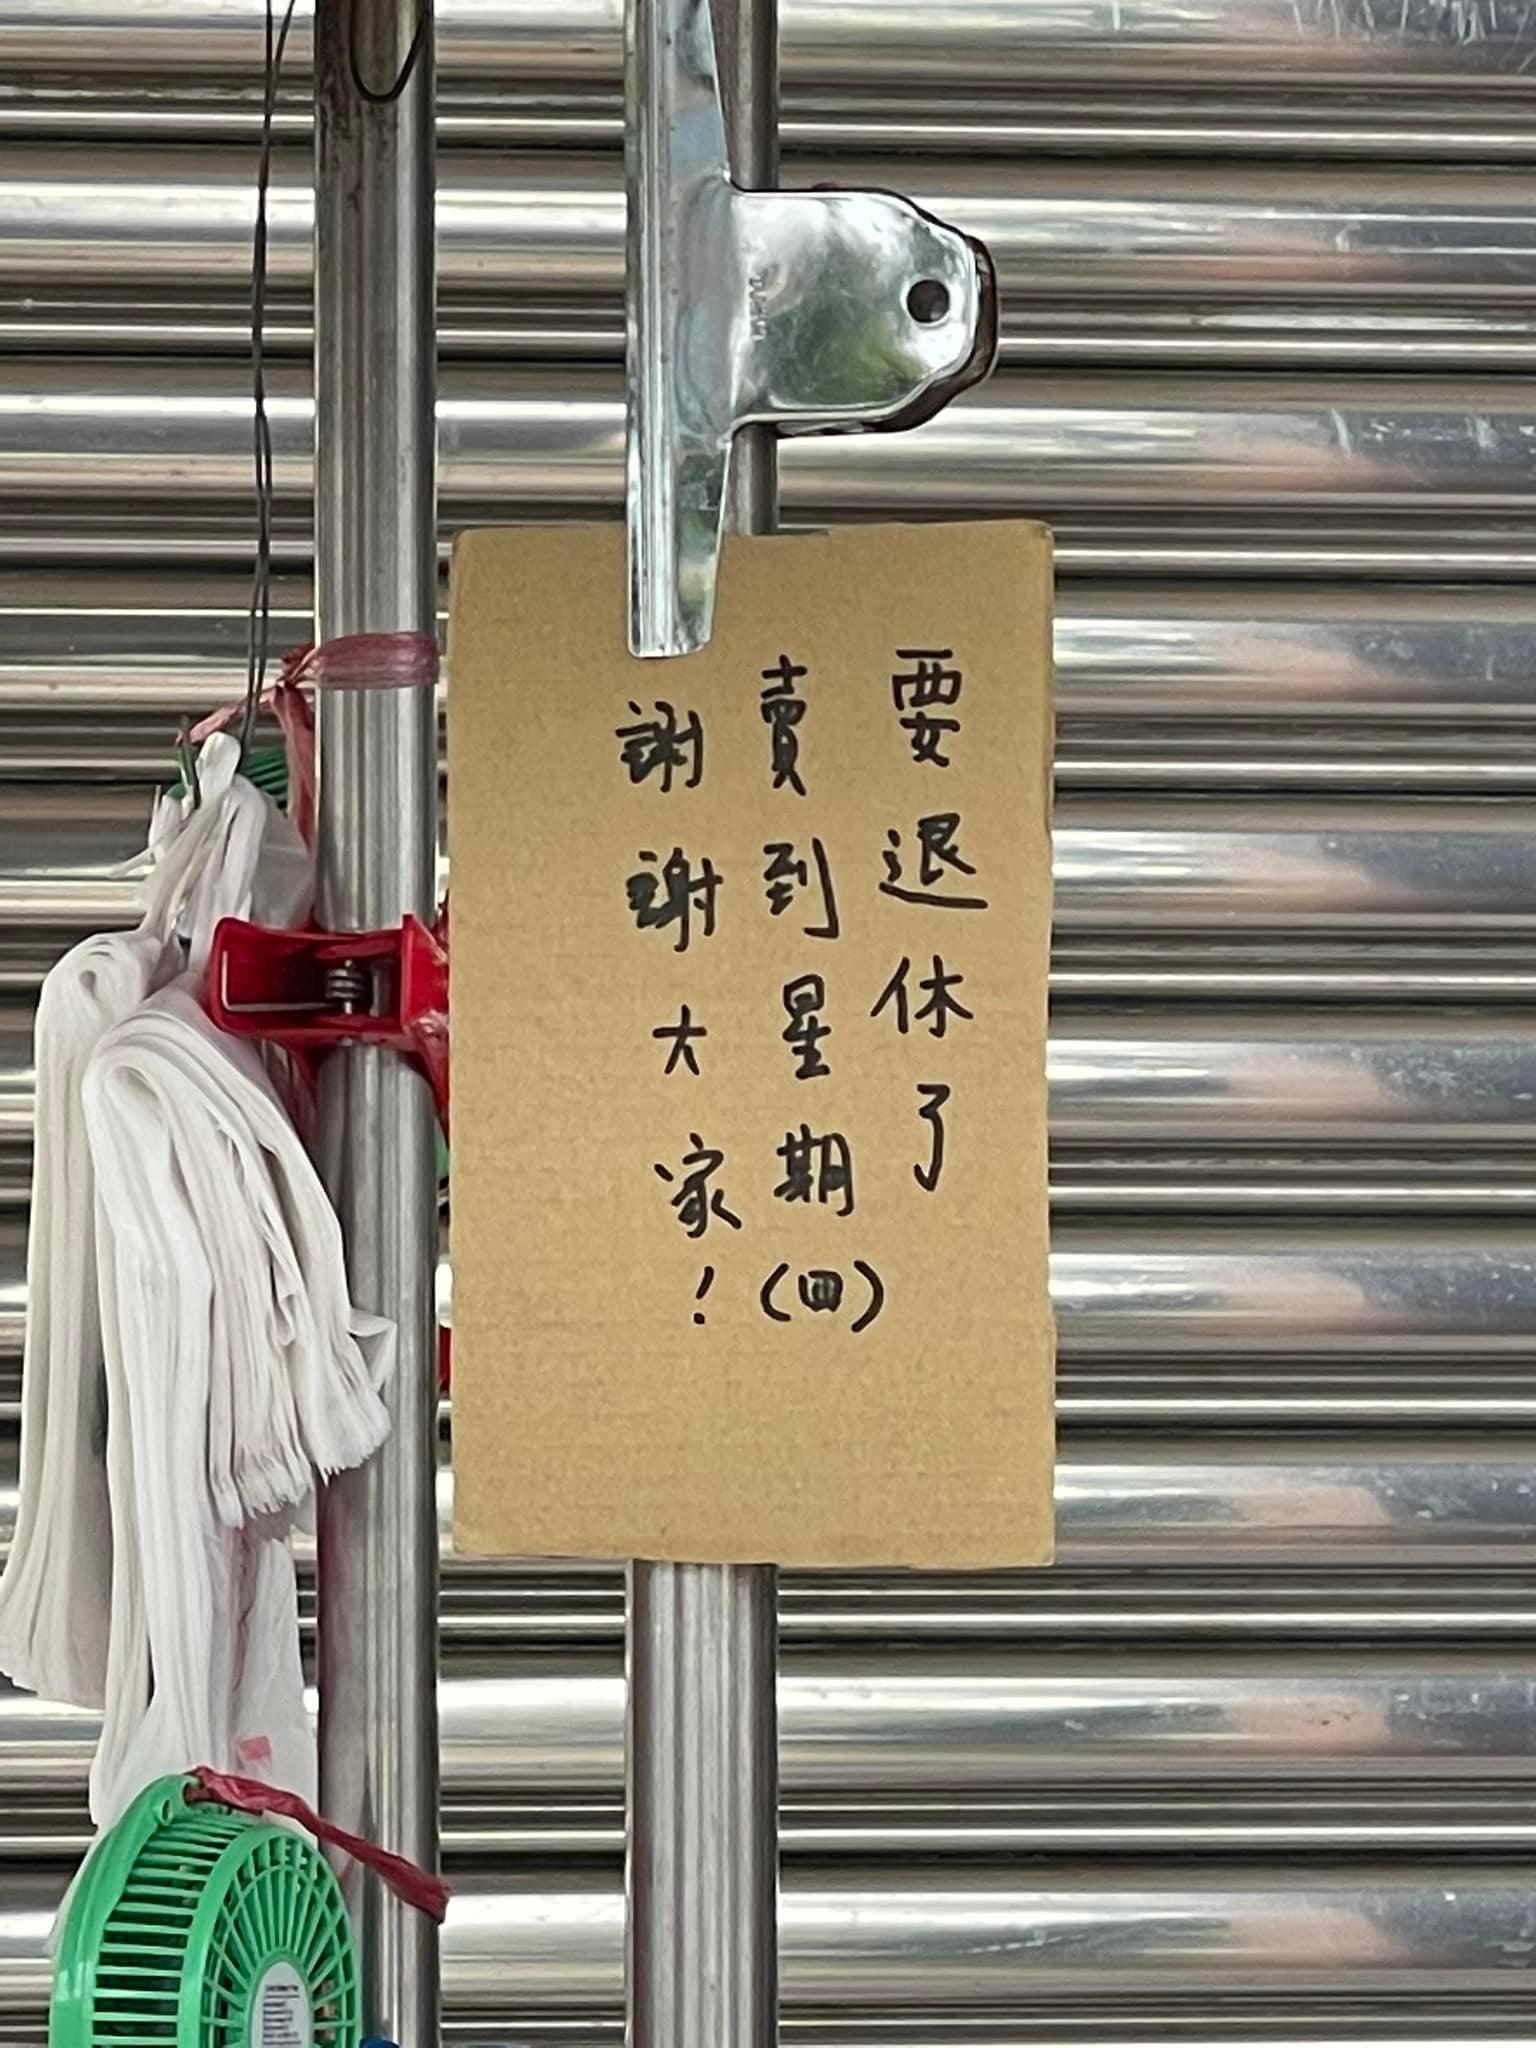 要退休了
賣到星期(四)
謝謝大家!